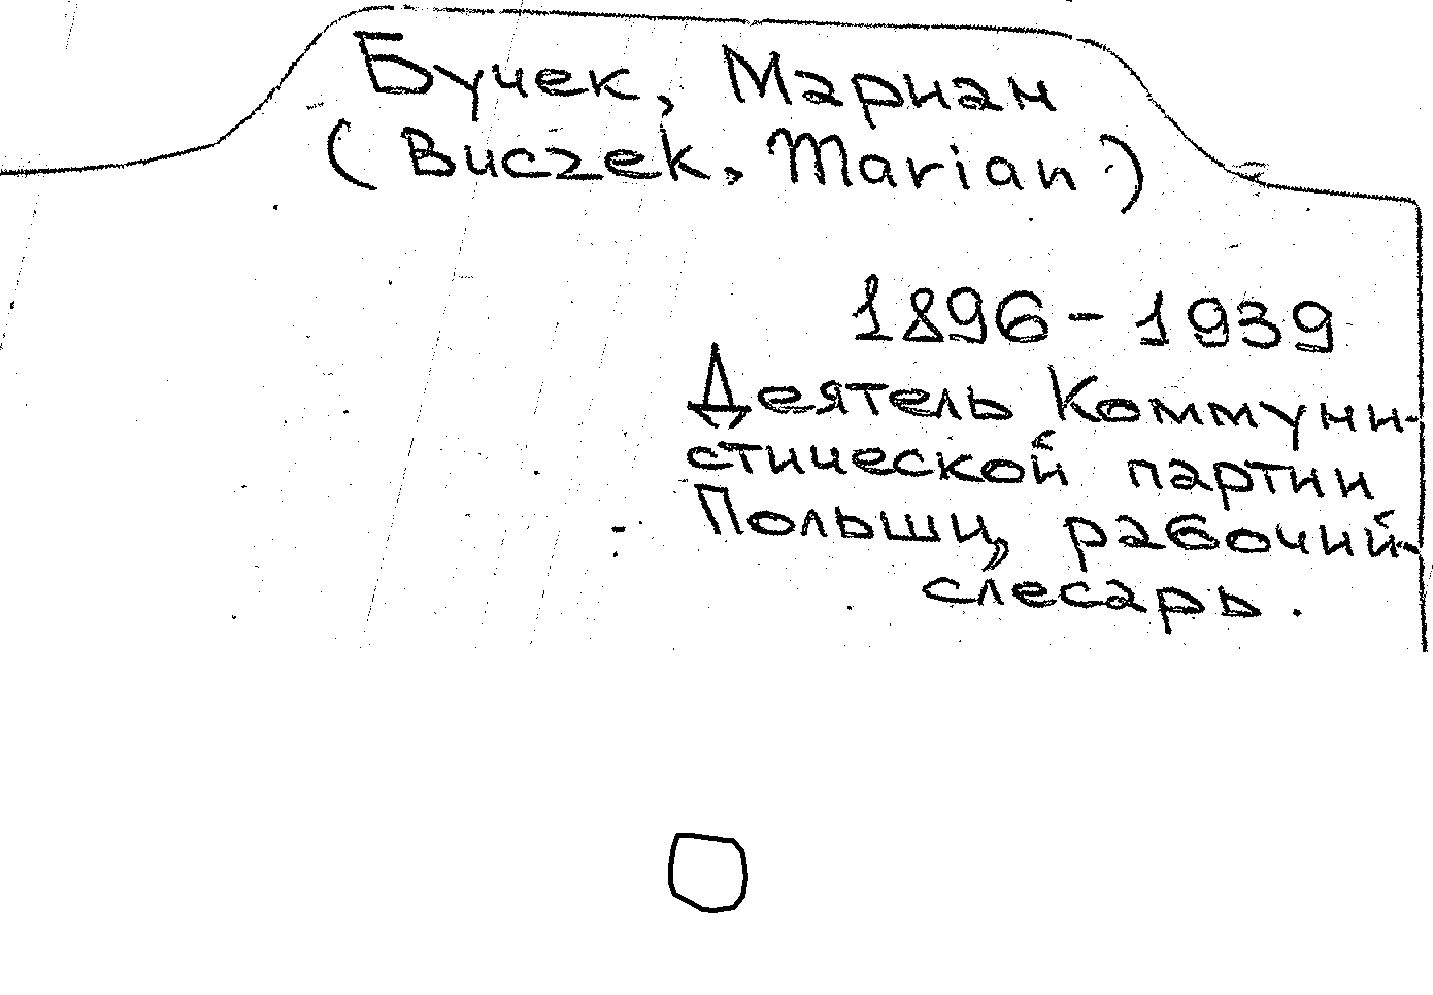 Бучек, Мариан
(Buczek, Marian)
1896-1939
Деятель Коммуни-
стической партии
Польши, рабочий-
слесарь.